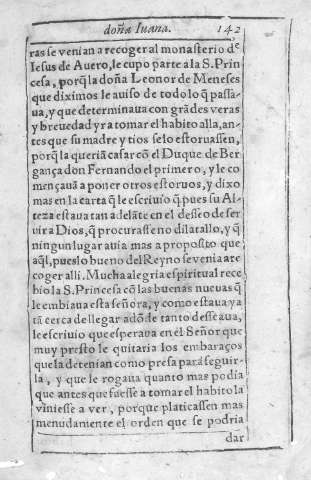 doña Iuana. 142
ras se venian a recoger al monasterio d̃
Iesus de Auero, le cupo parte a la S. Prin
cesa, porq̃ la doña Leonor de Meneses
que diximos le auiso de todo lo q̃ passa-
ua, y que determinaua con grãdes veras
y breuedad yra tomar el habito alla, an-
tes que su madre y tios se lo estoruassen,
porq̃ la queriã casar cõ el Duque de Ber
gança don Fernando el primero, y le co
mençauã a poner otros estoruos, y dixo
mas en la carta q̃ le escriuio q̃ pues su Al-
teza estaua tan adelãte en el desseo de ser
vir a Dios, q̃ procurasse no dilatallo, y q̃
ningun lugar auia mas a proposito que
aq̃l, pues lo bueno del Reyno se venia a re
coger alli. Mucha alegria espiritual rece
bio la S. Princesa cõ las buenas nueuas q̃
le embiaua esta señora, y como estaua ya
tã cerca de llegar adõde tanto desseaua,
le escriuio que esperaua en el Señor que
muy presto le quitaria los embaraços
que la detenian como presa para seguir-
la, y que le rogaua quanto mas podia
que antes que fuesse a tomar el habito la
viniesse a ver, porque platicassen mas
menudamente el orden que se podria
dar